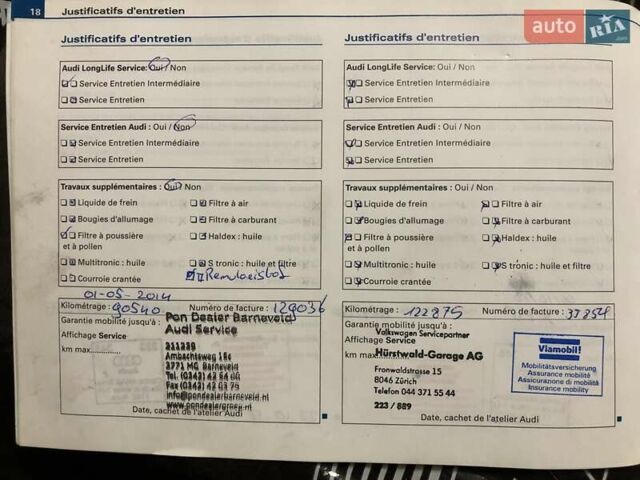 18 Justificatifs d'entretien
auto RIA .com
Justificatifs d'entretien
Audi LongLife Service: Oui / Non
Service Entretien Intermédiaire
Service Entretien
Service Entretien Audi : Oui / Non
Service Entretien Intermédiaire
Service Entretien
Travaux supplémentaires : Oui / Non
Liquide de frein
Filtre à air
Bougies d'allumage
Filtre à carburant
Filtre à poussière et à pollen
Haldex : huile
Multitronic : huile
S tronic : huile et filtre
Courroie crantée
01-05-2014
Kilométrage : 90540 Numéro de facture : 129036
Garantie mobilité jusqu'à :
Affichage Service
km max.............
Pon Dealer Barneveld
Audi Service
211239
Ambachtsweg 16c
3771 MG Barneveld
www.pondealerbarneveld.nl
Date, cachet de l'atelier Audi
Justificatifs d'entretien
Audi LongLife Service: Oui / Non
Service Entretien Intermédiaire
Service Entretien
Service Entretien Audi : Oui / Non
Service Entretien Intermédiaire
Service Entretien
Travaux supplémentaires : Oui / Non
Liquide de frein
Filtre à air
Bougies d'allumage
Filtre à carburant
Filtre à poussière et à pollen
Haldex : huile
Multitronic : huile
S tronic : huile et filtre
Courroie crantée
Kilométrage : 122875 Numéro de facture :
Garantie mobilité jusqu'à :
Affichage Service
km max.
Volkswagen Servicepartner
Hürstwald-Garage AG
Fronwaldstrasse 15
8046 Zürich
Telefon 044 371 55 44
223 / 889
Viamobil!
Mobilitätsversicherung
Assurance mobilité
Assicurazione di mobilità
Insurance mobility
Date, cachet de l'atelier Audi